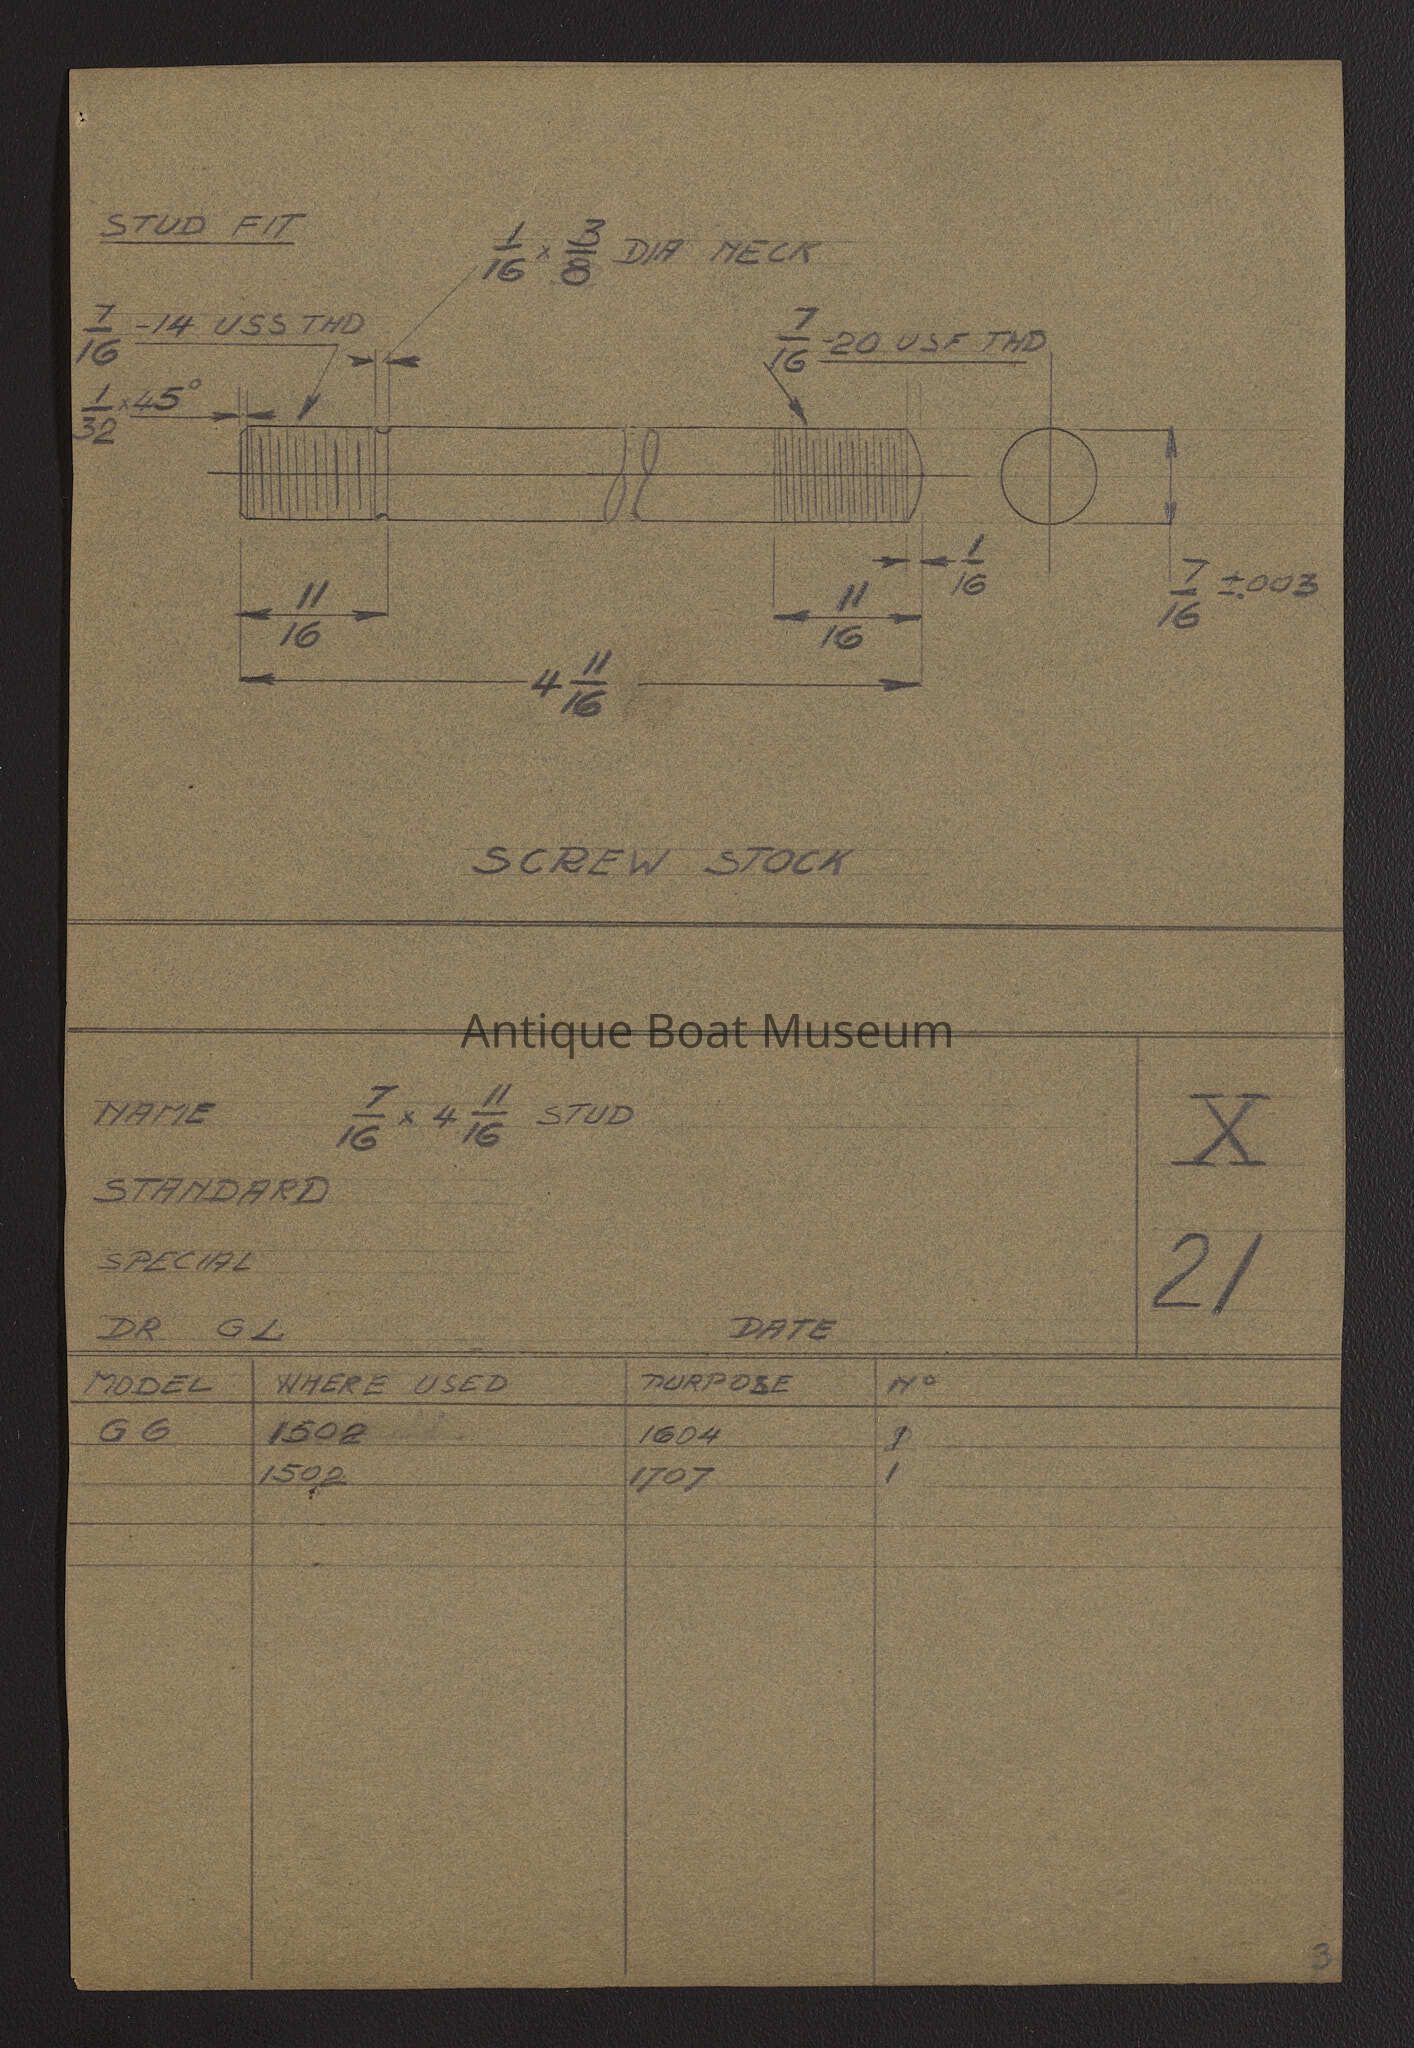 STUD FIT
1/16 x 3/8 DIA NECK
7/16 -14 USS THD
7/16 -20 USF THD
1/32 x 45°
1/16
11/16
11/16
7/16 ±.003
4 11/16
SCREW STOCK
Antique Boat Museum
NAME 7/16 x 4 11/16 STUD
X
STANDARD
SPECIAL
21
DR GL DATE
MODEL WHERE USED PURPOSE Nº
G6 1502 1604
1502 1707 1
3